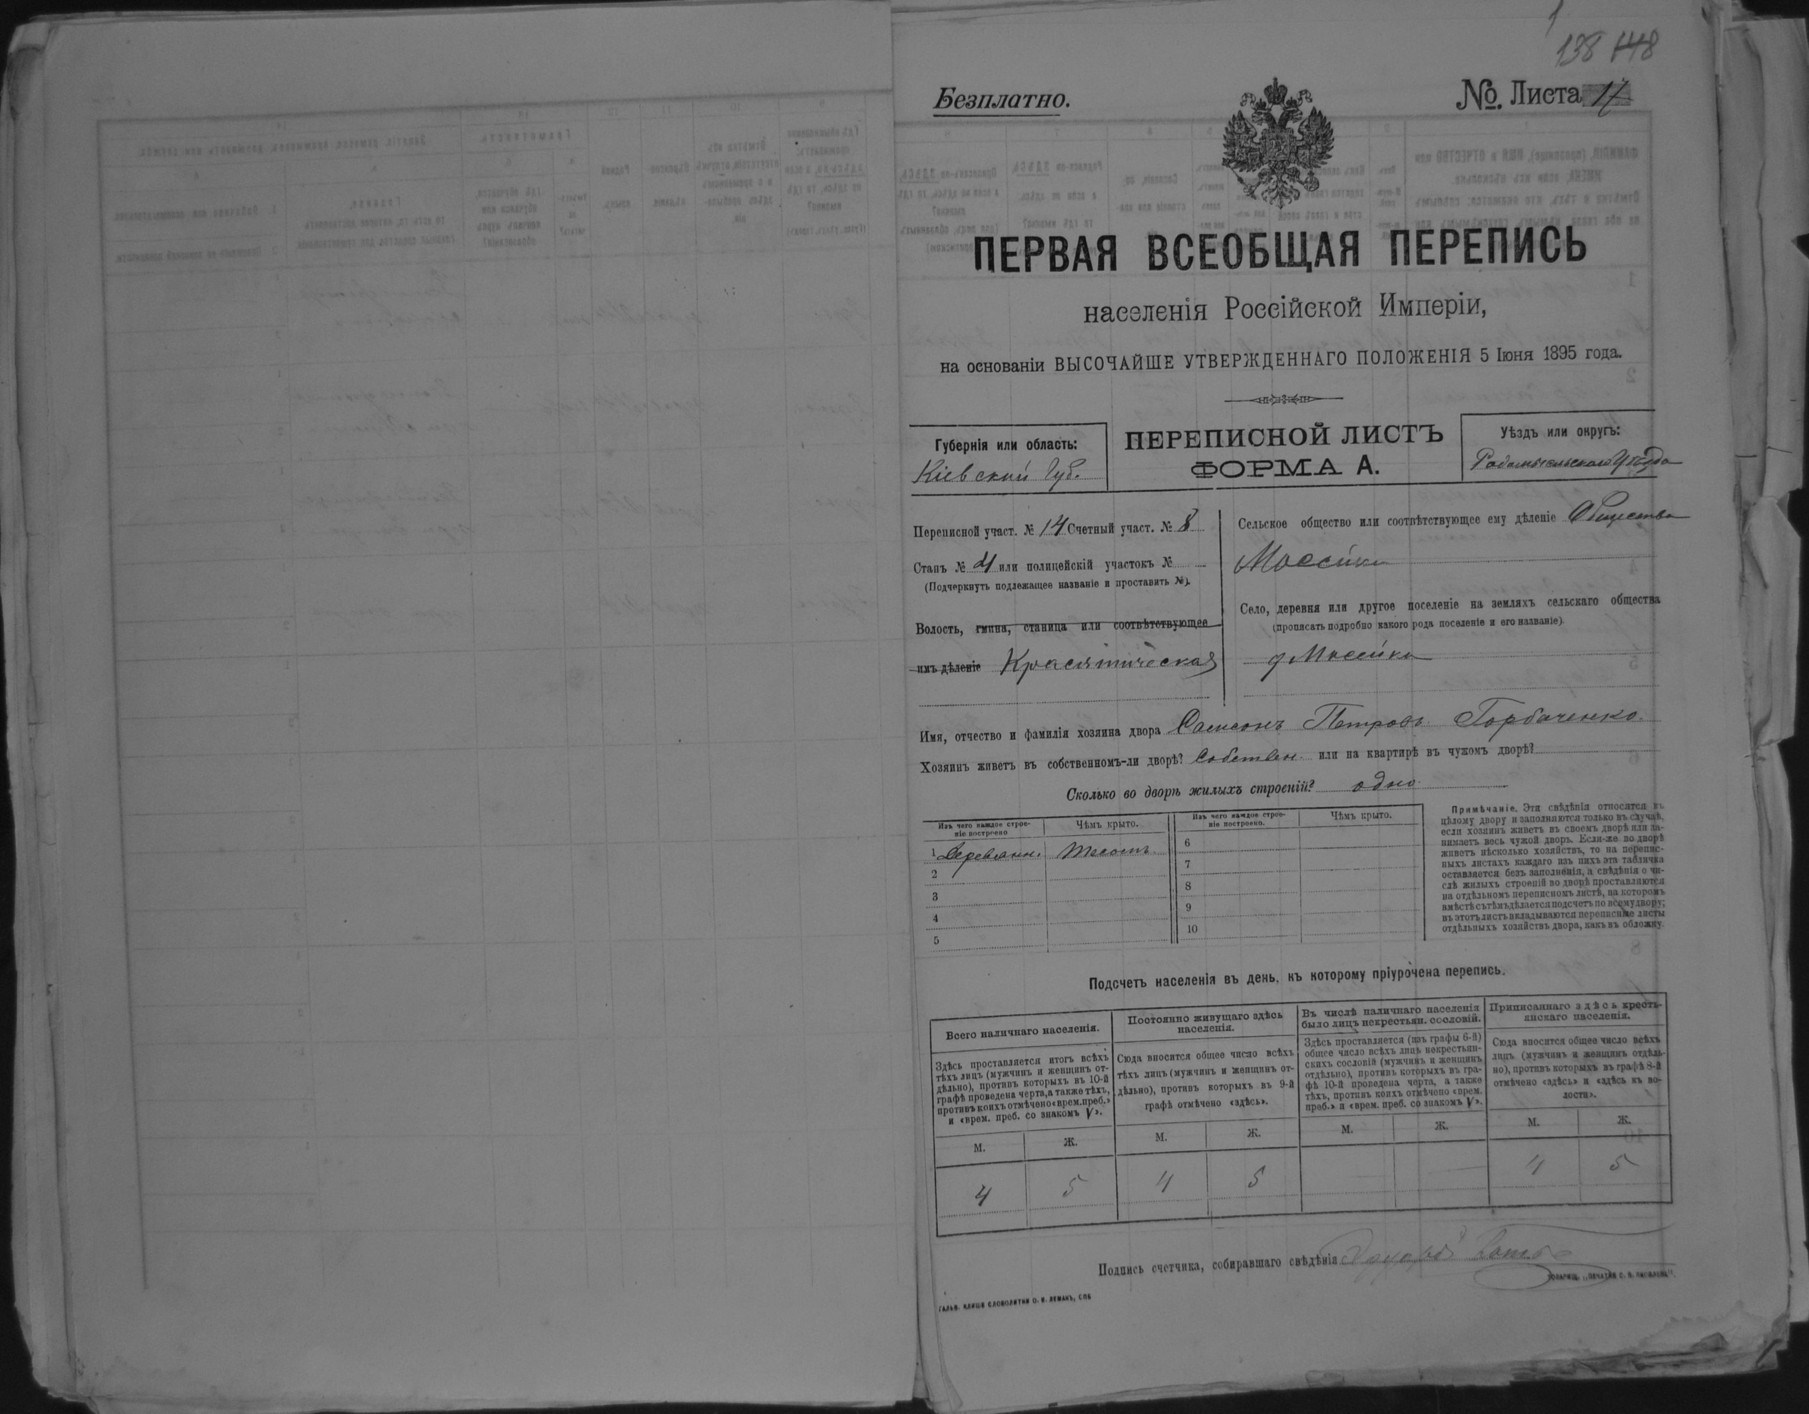 1
138 148
Безплатно.
№. Листа 4
ПЕРВАЯ ВСЕОБЩАЯ ПЕРЕПИСЬ
населенія Россійской Имперіи,
на основаніи ВЫСОЧАЙШЕ УТВЕРЖДЕННАГО ПОЛОЖЕНІЯ 5 Іюня 1895 года.
Губернія или область:
Кіевский Губ.
ПЕРЕПИСНОЙ ЛИСТЪ
ФОРМА А.
Уѣздъ или округъ:
Радомысльского Уѣзда
Переписной участ. № 14 Счетный участ. № 8
Станъ № 4 или полицейскій участокъ № —
(Подчеркнуть подлежащее названіе и проставить №).
Волость, гмина, станица или соотвѣтствующее
имъ дѣленіе Красятическая
Сельское общество или соотвѣтствующее ему дѣленіе Общество
Моссійка
Село, деревня или другое поселеніе на земляхъ сельскаго общества
(прописать подробно какого рода поселеніе и его названіе)
д Моссійка
Имя, отчество и фамилія хозяина двора Самсонъ Петровъ Горбаченко.
Хозяинъ живетъ въ собственномъ-ли дворѣ? Собствен. или на квартирѣ въ чужомъ дворѣ?
Сколько во дворѣ жилыхъ строеній? одно
Изъ чего каждое строе-
ніе построено
Чѣмъ крыто.
Изъ чего каждое строе-
ніе построено.
Чѣмъ крыто.
1 Деревянн. тесомъ
2
3
4
5
6
7
8
9
10
Примѣчаніе. Эти свѣдѣнія относятся къ
цѣлому двору и заполняются только въ случаѣ,
если хозяинъ живетъ въ своемъ дворѣ или за-
нимаетъ весь чужой дворъ. Если-же во дворѣ
живетъ нѣсколько хозяйствъ, то на перепис-
ныхъ листахъ каждаго изъ нихъ эта табличка
оставляется безъ заполненія, а свѣдѣнія о чи-
слѣ жилыхъ строеній во дворѣ проставляются
на отдѣльномъ переписномъ листѣ, на которомъ
вмѣстѣ съ тѣмъ дѣлается подсчетъ по всему двору;
въ этотъ листъ вкладываются переписные листы
отдѣльныхъ хозяйствъ двора, какъ въ обложку.
Подсчетъ населенія въ день, къ которому пріурочена перепись.
Всего наличнаго населенія.
Здѣсь проставляется итогъ всѣхъ
тѣхъ лицъ (мужчинъ и женщинъ от-
дѣльно), противъ которыхъ въ 10-й
графѣ проведена черта, а также тѣхъ,
противъ коихъ отмѣчено «врем. преб.»
и «врем. преб. со знакомъ V».
Постоянно живущаго здѣсь
населенія.
Сюда вносится общее число всѣхъ
тѣхъ лицъ (мужчинъ и женщинъ от-
дѣльно), противъ которыхъ въ 9-й
графѣ отмѣчено «здѣсь».
Въ числѣ наличнаго населенія
было лицъ некрестьян. сословій.
Здѣсь проставляется (изъ графы 6-й)
общее число всѣхъ лицъ некрестьян-
скихъ сословій (мужчинъ и женщинъ
отдѣльно), противъ которыхъ въ гра-
фѣ 10-й проведена черта, а также
тѣхъ, противъ коихъ отмѣчено «врем.
преб.» и «врем. преб. со знакомъ V».
Приписаннаго здѣсь кресть-
янскаго населенія.
Сюда вносится общее число всѣхъ
лицъ (мужчинъ и женщинъ отдѣль-
но), противъ которыхъ въ графѣ 8-й
отмѣчено «здѣсь» и «здѣсь въ во-
лости».
М. Ж. М. Ж. М. Ж. М. Ж.
4 5 4 5 4 5
Подпись счетчика, собиравшаго свѣдѣнія
ГАЛЬВ. КЛИШЕ СЛОВОЛИТНИ О. И. ЛЕМАНЪ, СПБ